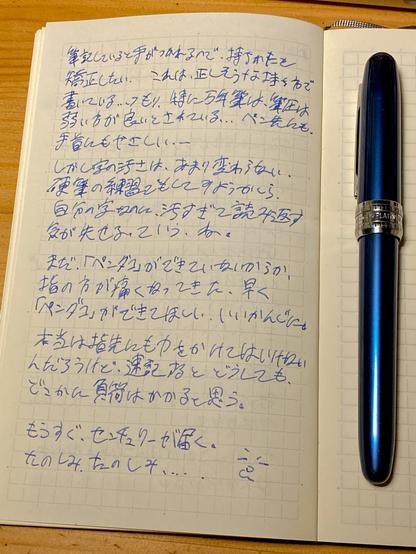 筆記していると手がつかれるので、持ちかたを
矯正したい。 これは、正しそうな持ち方で
書いている...つもり。特に万年筆は、筆圧は
弱い方が良いとされている... ペン先にも、
手首にもやさしい、ー
しかし字の汚さは、あまり変わらない。
硬筆の練習でもしてみようかしら、
自分の字なのに、汚すぎて読み返す
気が失せる、という、ね。
まだ、「ペンダコ」ができていないからか、
指の方が痛くなってきた、早く
「ペンダコ」ができてほしい、いいかんじに。
本当は指先にも力をかけてはいけない
んだろうけど、速記すると どうしても、
どこかに 負荷はかかると思う。
もうすぐ、センチュリーが届く。
たのしみ、たのしみ、....